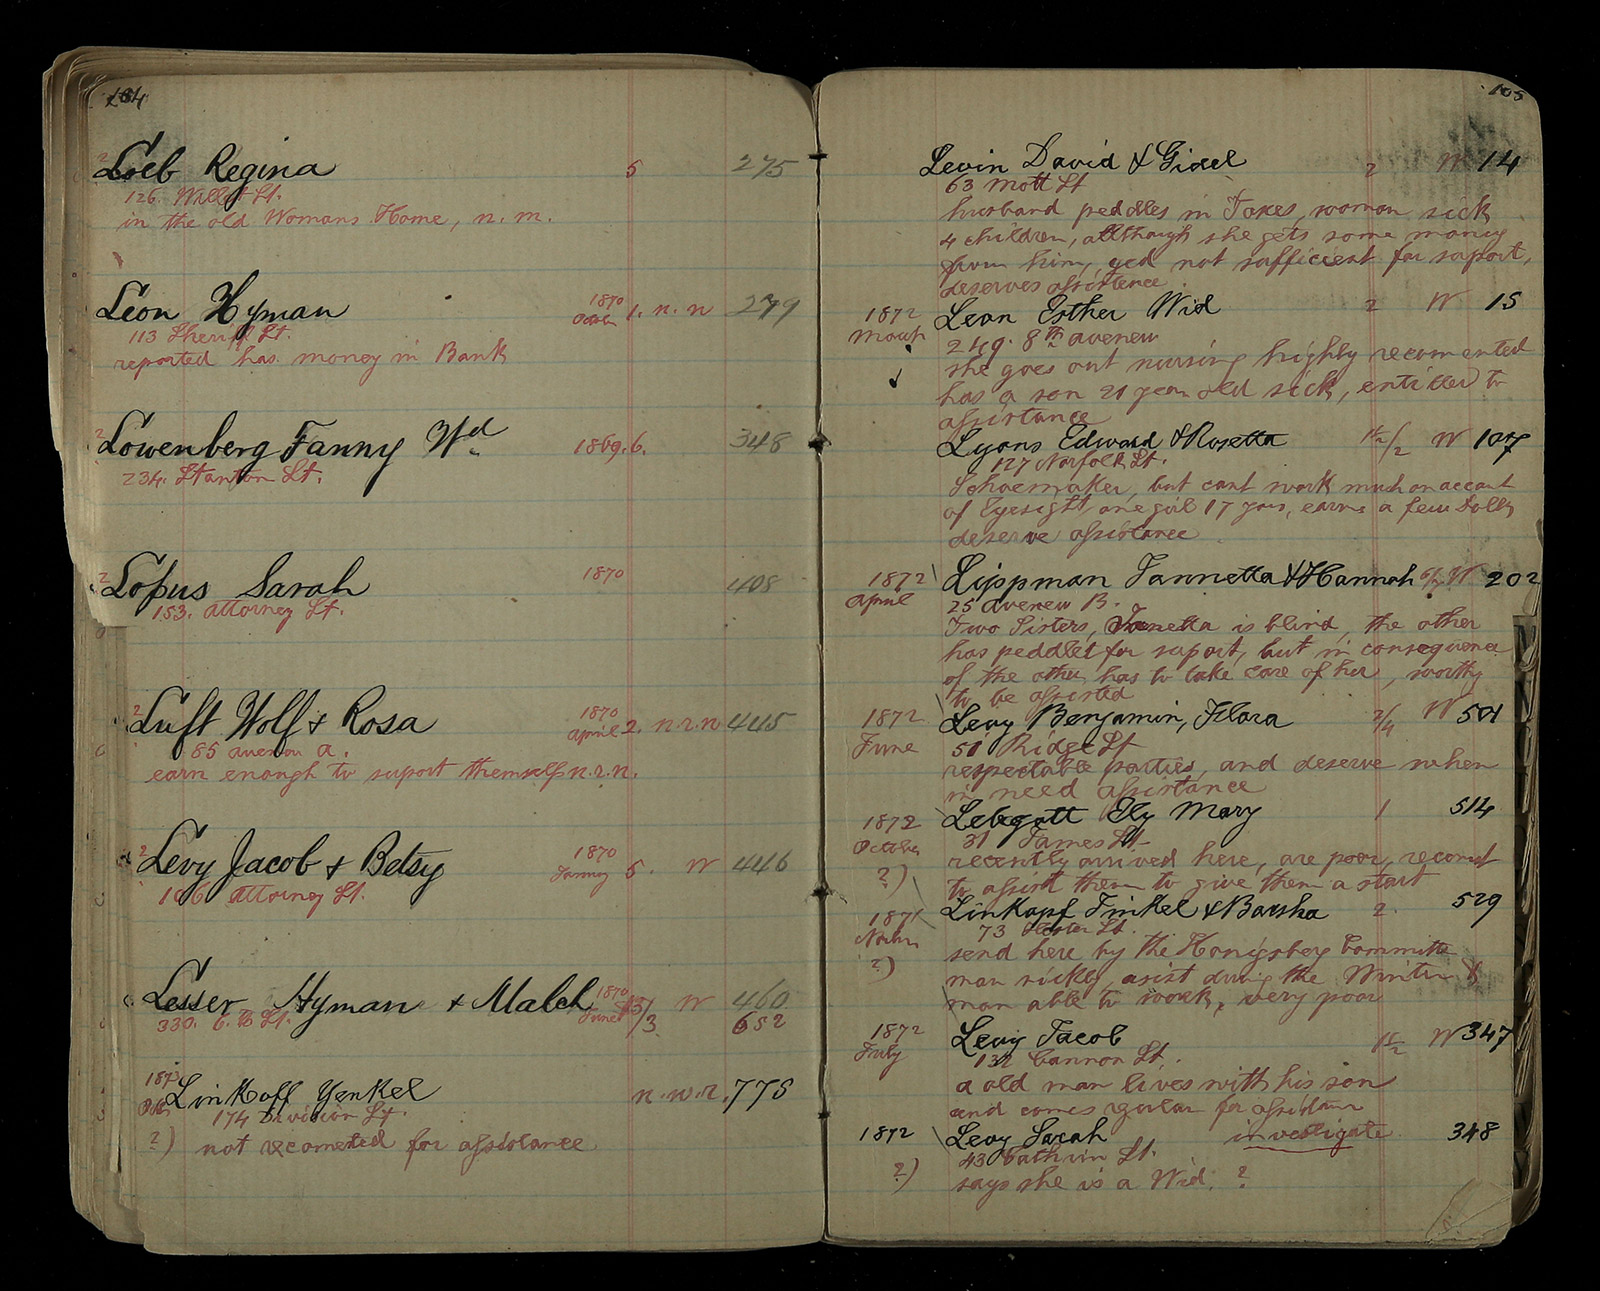 104
Loeb Regina 5 275
126. Willet St.
in the old Womans Home, n. m.
Leon Hyman 1870 1. n. n 279
113 Sheriff St.
reported has money in Bank
Lowenberg Fanny Wd 1869. 6. 348
234. Stanton St.
Lopus Sarah 1870 408
153. attorney St.
Luft Wolf & Rosa 1870 april 2. n.r.n 445
85 avenou a.
earn enough to suport themself n.r.n.
Levy Jacob & Betsy 1870 5. W 446
106 attorney St.
Lesser Hyman & Malch 1870 June 3/3 W 460
330. 6. th St. 652
Linkoff Yenkel n.w.r. 775
174 Division St.
?) not recometed for assistance
105
Levin David & Gidel 2 W 14
63 Mott St
husband peddles in Foxes, woman sick
4 children, allthough she gets some money
from him, yed not sufficient for suport,
deserves assistence
1872 Leon Esther Wid 2 W 15
249. 8th avenew
she goes out nursing highly recomented
has a son 21 year old sick, entitled to
assistance
Lyons Edward & Rosetta W 107
127 Norfolk St.
Schoemaker, but cant work much on accont
of Eyesight, one girl 17 years, earns a few Dolls
deserve assistance
1872 Lippman Fannetta & Hannah W 202
april 25 avenew B.
Two Sisters, Fanetta is blind, the other
has peddlet for suport, but in consequence
of the other has to take care of her, worthy
to be assisted
1872 Levy Benjamin, Flora 2/4 W 501
June 51 Ridge St
respectable parties, and deserve when
in need assistance
1872 Lebegott Ely Mary 1 514
October 31 James St.
recently arrived here, are poor, recomt
?) to assist them to give them a start
1871 Linkopf Finkel & Barsha 2. 529
73 Hester St.
?) send here by the Konigsberg Committe
man sickly, asist during the Winter
man able to work, very poor
1872 Levy Jacob W 347
July 132 Cannon St.
a old man lives with his son
and comes regular for assistance
1872 Levy Sarah investigate 348
43 Cathrin St.
?) says she is a Wid. ?